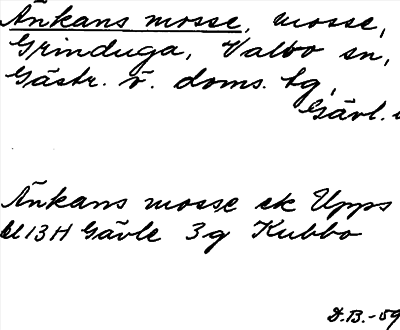 Änkans mosse, mosse,
Grinduga, Valbo sn,
Gästr. ö. doms. tg,
Gävl.
Änkans mosse ek Upps
bl 13H Gävle 3g Kubbo
D.B.-59